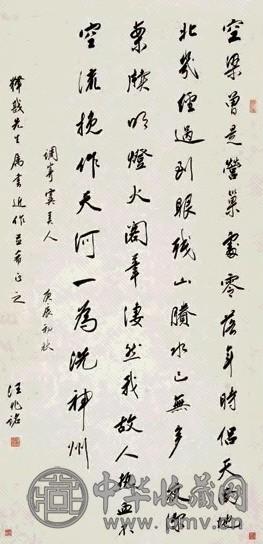 空梁曾是營巢處零落年時侶天南地
北幾經過到眼殘山賸水已無多夜深
案牘明燈火閣筆淒然我故人熱血不
空流挽作天河一為洗神州
調寄虞美人 庚辰初秋
釋戡先生屬書近作並希正之 汪兆銘
中华收藏网